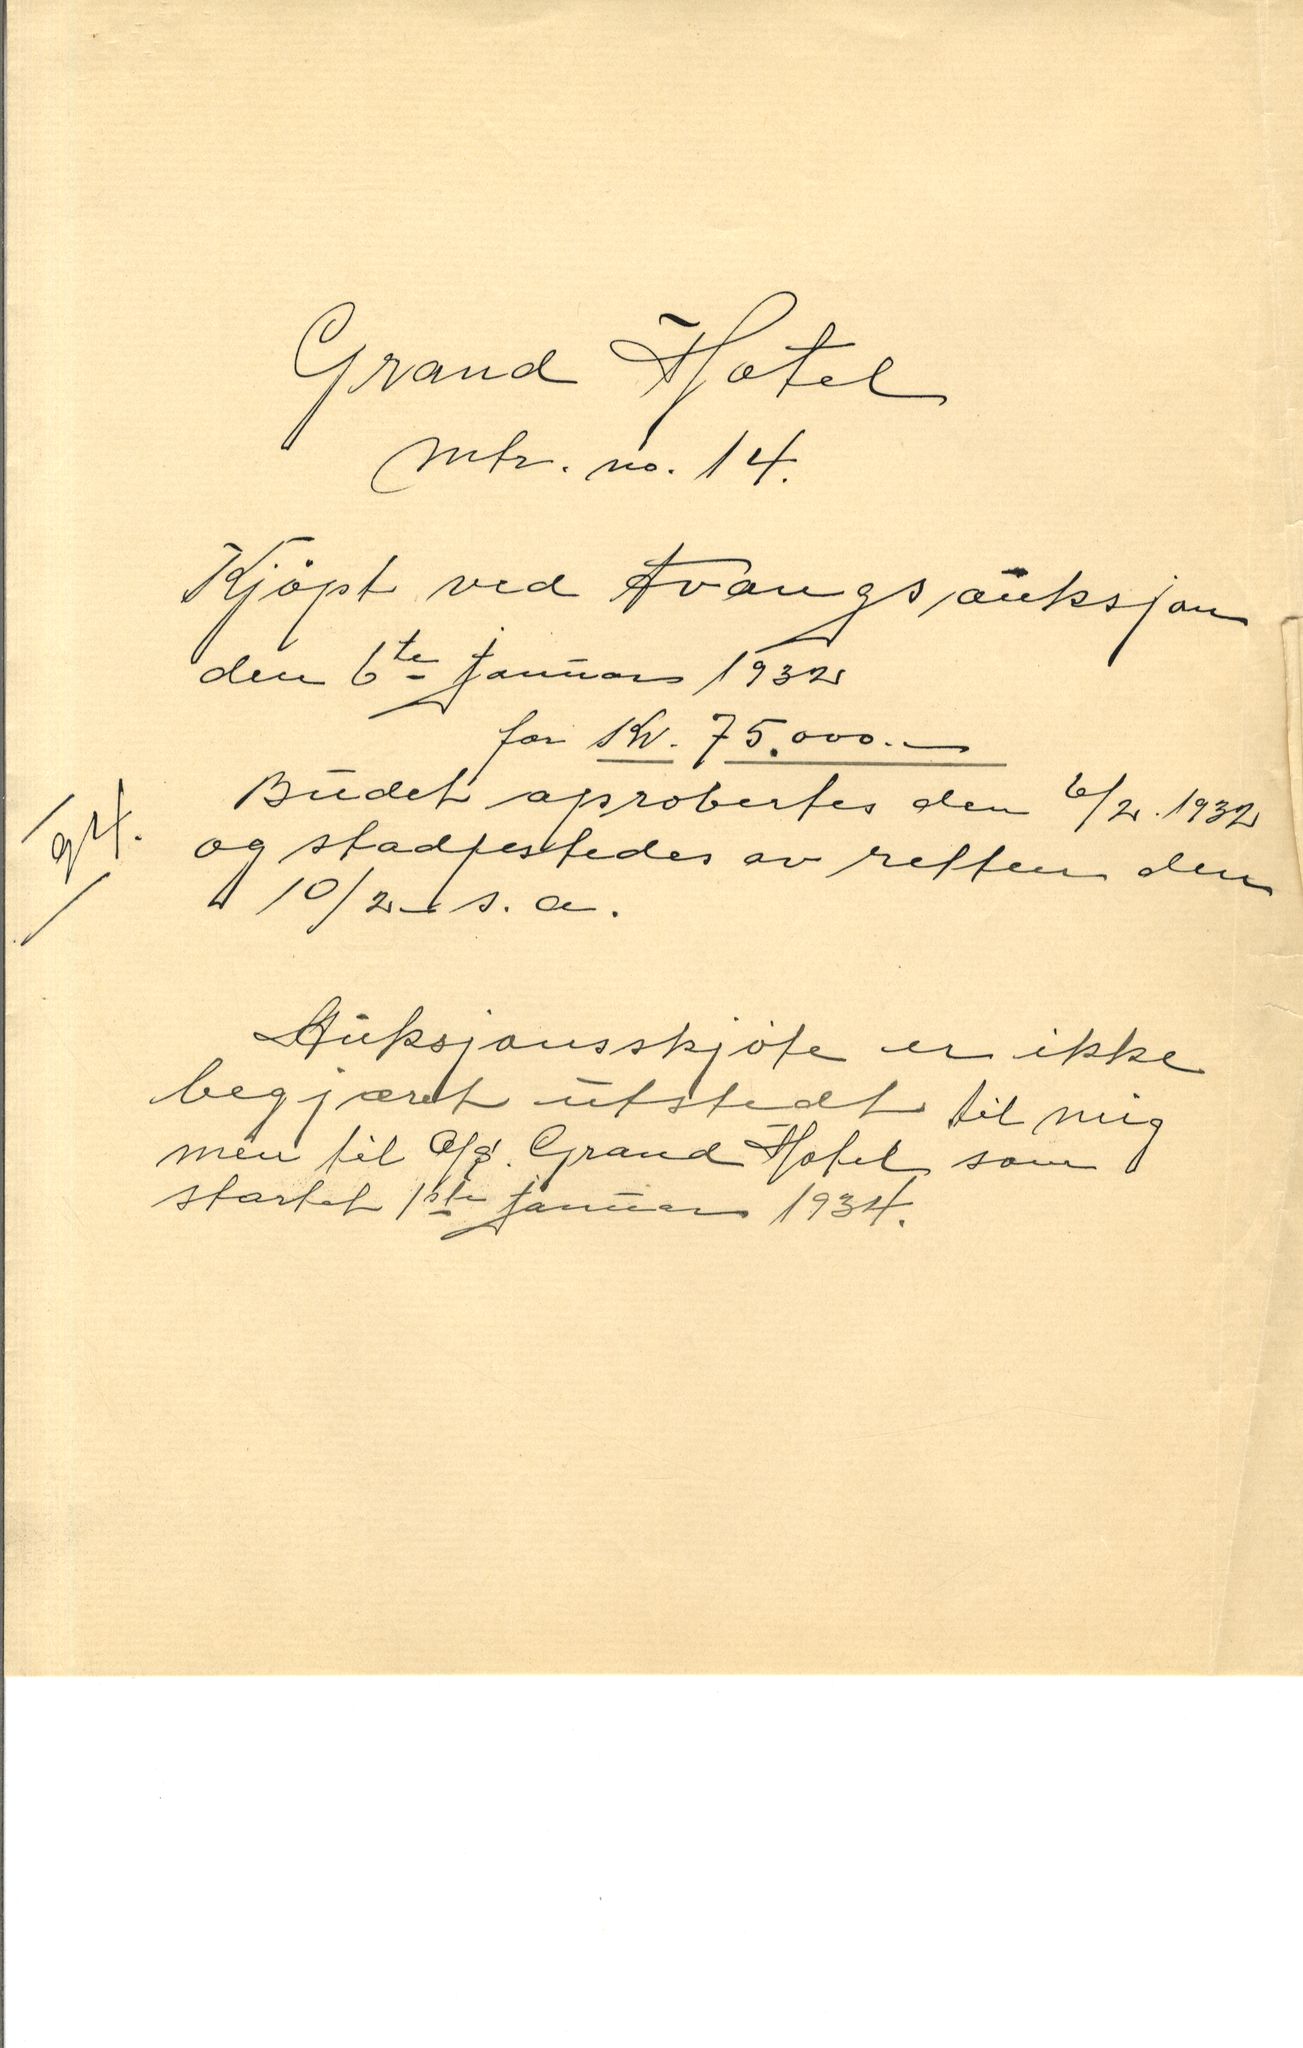 Grand Hotel
Mtr. no. 14.
Kjöpt ved tvangsauksjon
den 6te januar 1932
for Kr. 75.000.-
Budet aprobertes den 6/2. 1932
og stadfestedes av retten den
10/2 s. a.
Auksjonsskjöte er ikke
begjæret utstedt til mig
men til A/S. Grand Hotel som
startet 1ste januar 1934.